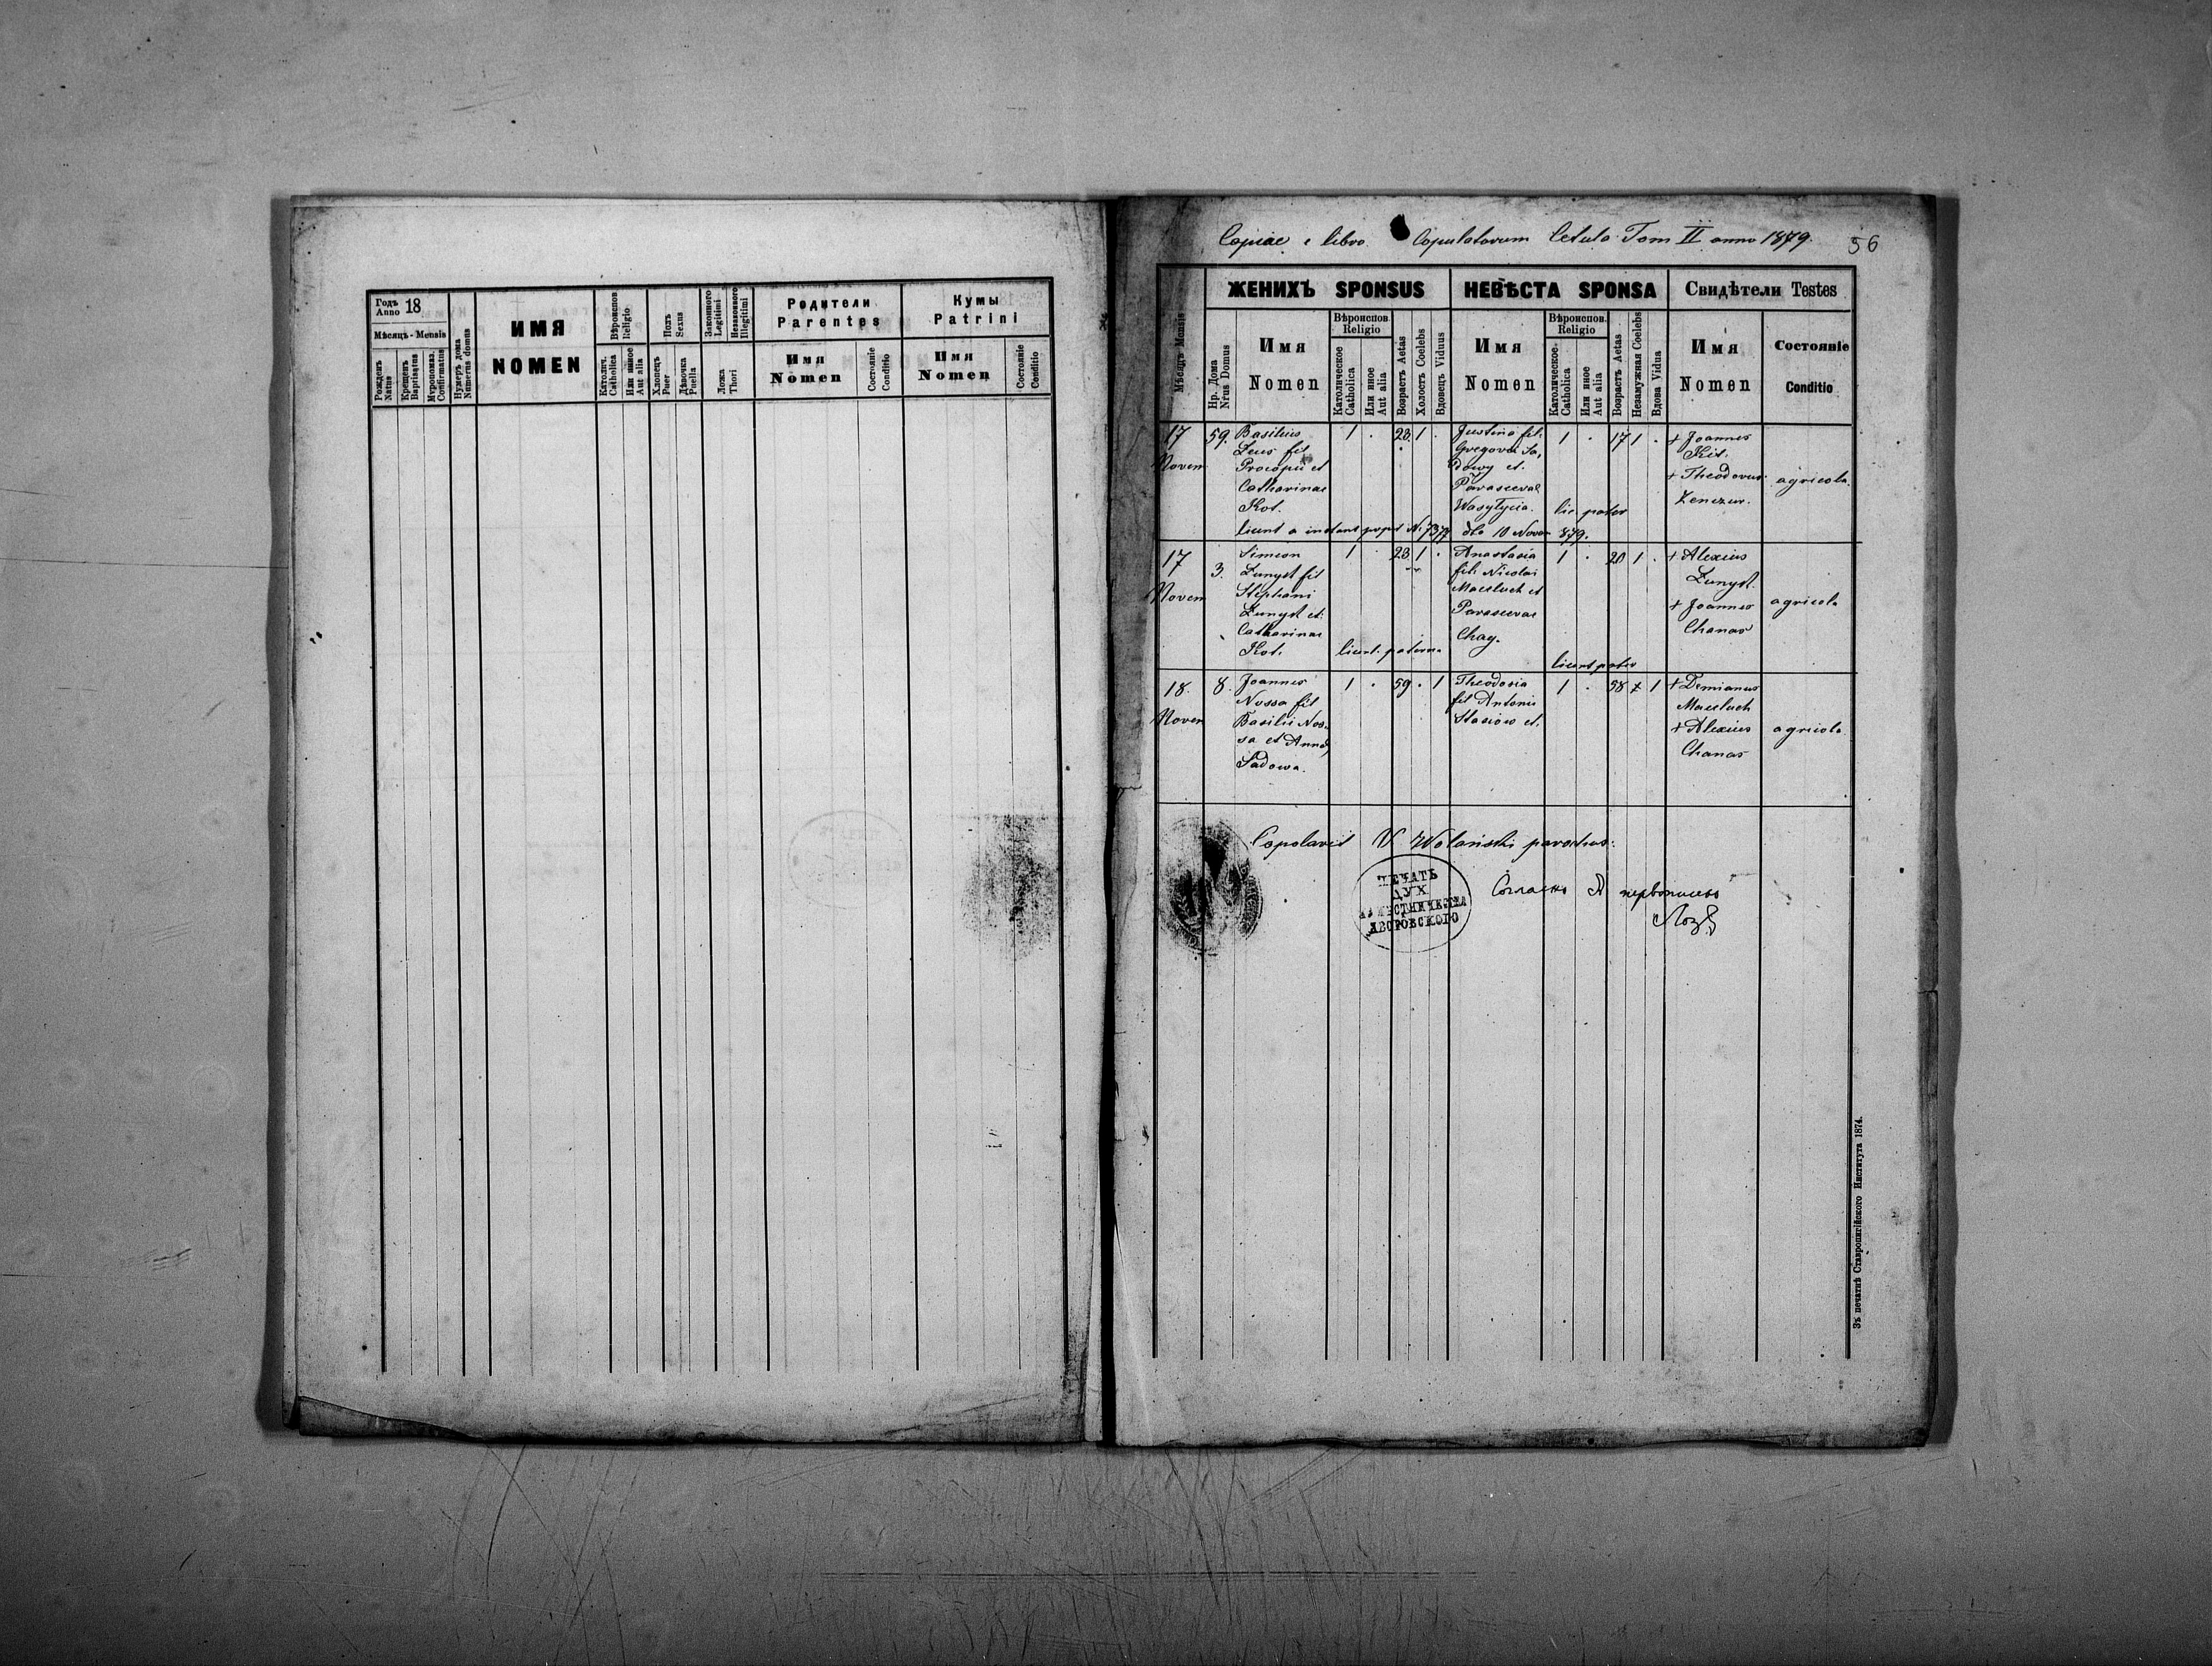 Годъ Anno 18
Мѣсяцъ - Mensis
Рожденъ Natus
Крещенъ Baptisatus
Муропомаз. Confirmatus
Нумеръ дома Numerus domus
ИМЯ
NOMEN
Вѣроиспов Religio
Католич. Catholica
Или иное Aut alia
Полъ Sexus
Хлопецъ Puer
Дѣвочка Puella
Законного Legitimi
Незаконного Illegitimi
Ложа Thori
Родители
Parentes
Имя
Nomen
Состояніе Conditio
Кумы
Patrini
Имя
Nomen
Состояніе Conditio
Copiae e libro Copulatorum Cetula Tom II anno 1879.
56
Мѣсяцъ Mensis
ЖЕНИХЪ SPONSUS
НЕВѢСТА SPONSA
Свидѣтели Testes
Нр. Дома Nrus Domus
Имя
Nomen
Вѣроиспов.
Religio
Католическое Catholica
Или иное Aut alia
Возрастъ Aetas
Холостъ Coelebs
Вдовецъ Viduus
Имя
Nomen
Вѣроиспов.
Religio
Католическое Catholica
Или иное Aut alia
Возрастъ Aetas
Незаужная Coelebs
Вдова Vidua
Имя
Nomen
Состояніе
Conditio
17
Novem
59.
Basilius
fil
Procopii et
Catharinae
Kot.
1 . 23. 1 .
Justina fil.
Gregorii Sa,
dowy et.
Parascevae
Wasylycia.
lic pater
1 . 17 1 .
+ Joannes
Kit.
+ Theodorus
agricola.
N. 7377 dto 10 Novem 879.
17
Novem
3.
Simeon
Lunyst fil
Stephani
Lunyst et.
Catharinae
Kot.
1 . 23 1 .
Anastasia
fil. Nicolai
Maciluch et
Parascevae
Chay.
1 . 20 1 .
+ Alexius
Lunyst.
+ Joannes
Chanas
agricola
18.
Novem
8.
Joannes
Nossa fil
Basilii Nos-
sa et Anna
Sadowa.
1 . 59 . 1
Theodosia
fil Antonii
Stasiow et.
1 . 58 1
+ Demianus
Maciluch
+ Alexius
Chanas
agricola
Copolavit V Wolanski parochus.
ПЕЧАТЬ
ДУХ
ЯВОРОВСКОГО
Зъ печатнѣ Ставропигійского Института 1874.